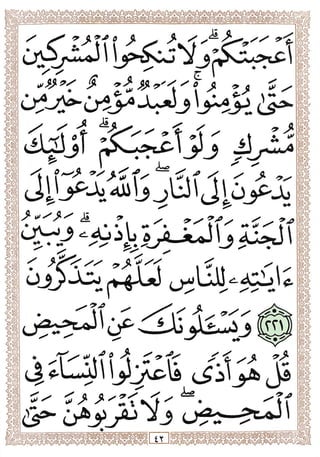 أَعۡجَبَتۡكُمۡۗ وَلَا تُنكِحُواْ ٱلۡمُشۡرِكِينَ
حَتَّىٰ يُؤۡمِنُواْۚ وَلَعَبۡدٞ مُّؤۡمِنٌ خَيۡرٞ مِّن
مُّشۡرِكٖ وَلَوۡ أَعۡجَبَكُمۡۗ أُوْلَٰٓئِكَ
يَدۡعُونَ إِلَى ٱلنَّارِۖ وَٱللَّهُ يَدۡعُوٓاْ إِلَى
ٱلۡجَنَّةِ وَٱلۡمَغۡفِرَةِ بِإِذۡنِهِۦۖ وَيُبَيِّنُ
ءَايَٰتِهِۦ لِلنَّاسِ لَعَلَّهُمۡ يَتَذَكَّرُونَ
٢٢١ وَيَسۡـَٔلُونَكَ عَنِ ٱلۡمَحِيضِ
قُلۡ هُوَ أَذٗى فَٱعۡتَزِلُواْ ٱلنِّسَآءَ فِي
ٱلۡمَحِيضِ وَلَا تَقۡرَبُوهُنَّ حَتَّىٰ
٤٢